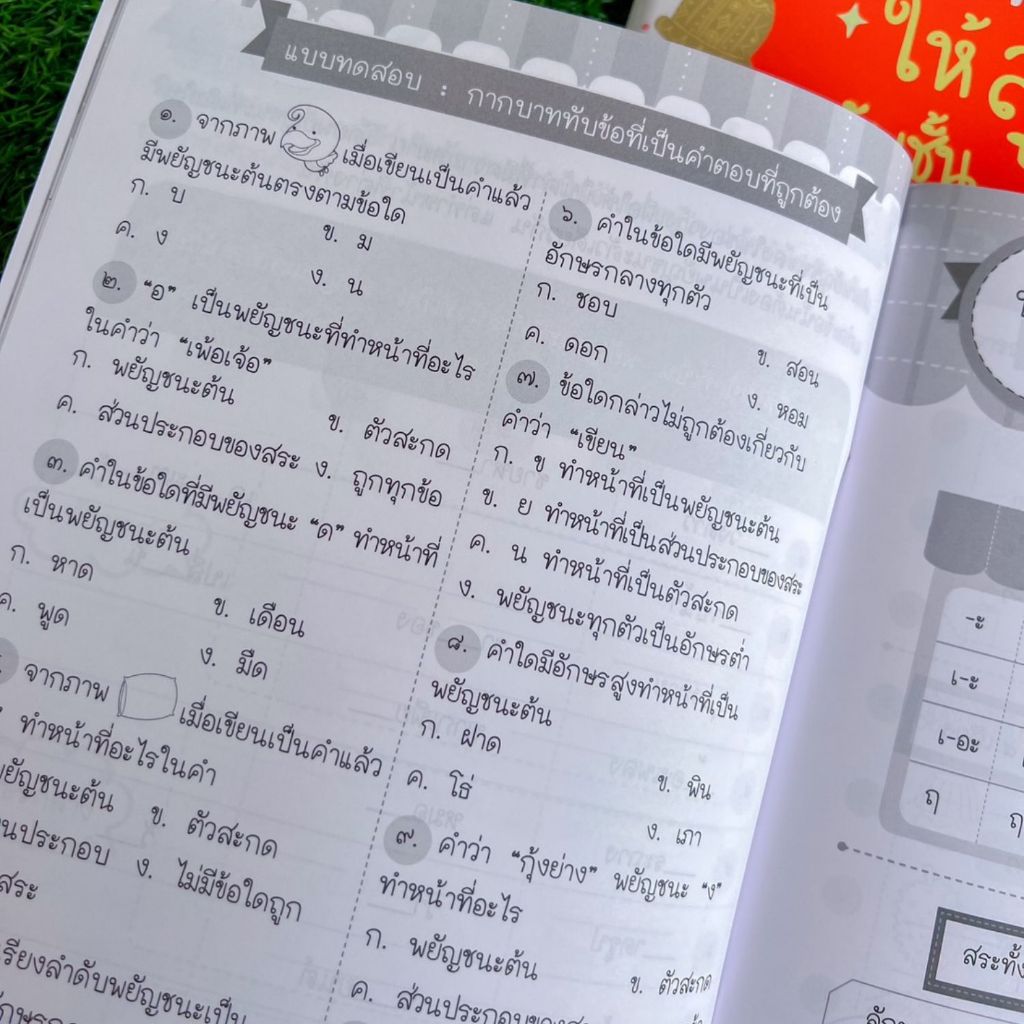 แบบทดสอบ : กากบาททับข้อที่เป็นคำตอบที่ถูกต้อง
๑. จากภาพ เมื่อเขียนเป็นคำแล้ว
มีพยัญชนะต้นตรงตามข้อใด
ก. บ
ข. ม
ค. ง
ง. น
๒. “อ” เป็นพยัญชนะที่ทำหน้าที่อะไร
ในคำว่า “เพ้อเจ้อ”
ก. พยัญชนะต้น
ข. ตัวสะกด
ค. ส่วนประกอบของสระ ง. ถูกทุกข้อ
๓. คำในข้อใดที่มีพยัญชนะ “ด” ทำหน้าที่
เป็นพยัญชนะต้น
ก. หาด
ข. เดือน
ค. พูด
ง. มืด
จากภาพ เมื่อเขียนเป็นคำแล้ว
ทำหน้าที่อะไรในคำ
พยัญชนะต้น ข. ตัวสะกด
นประกอบ ง. ไม่มีข้อใดถูก
สระ
เรียงลำดับพยัญชนะเป็น
๖. คำในข้อใดมีพยัญชนะที่เป็น
อักษรกลางทุกตัว
ก. ชอบ
ข. สอน
ค. ดอก
ง. หอม
๗. ข้อใดกล่าวไม่ถูกต้องเกี่ยวกับ
คำว่า “เขียน”
ก. ข ทำหน้าที่เป็นพยัญชนะต้น
ข. ย ทำหน้าที่เป็นส่วนประกอบของสระ
ค. น ทำหน้าที่เป็นตัวสะกด
ง. พยัญชนะทุกตัวเป็นอักษรต่ำ
๘. คำใดมีอักษรสูงทำหน้าที่เป็น
พยัญชนะต้น
ก. ฝาด
ข. พิน
ค. โธ่
ง. เภา
๙. คำว่า “กุ้งย่าง” พยัญชนะ “ง”
ทำหน้าที่อะไร
ก. พยัญชนะต้น
ข. ตัวสะกด
ค. ส่วนประกอบของสระ
ให้
ชั้น
-ะ
เ-ะ
เ-อะ
ฤ
สระทั้ง